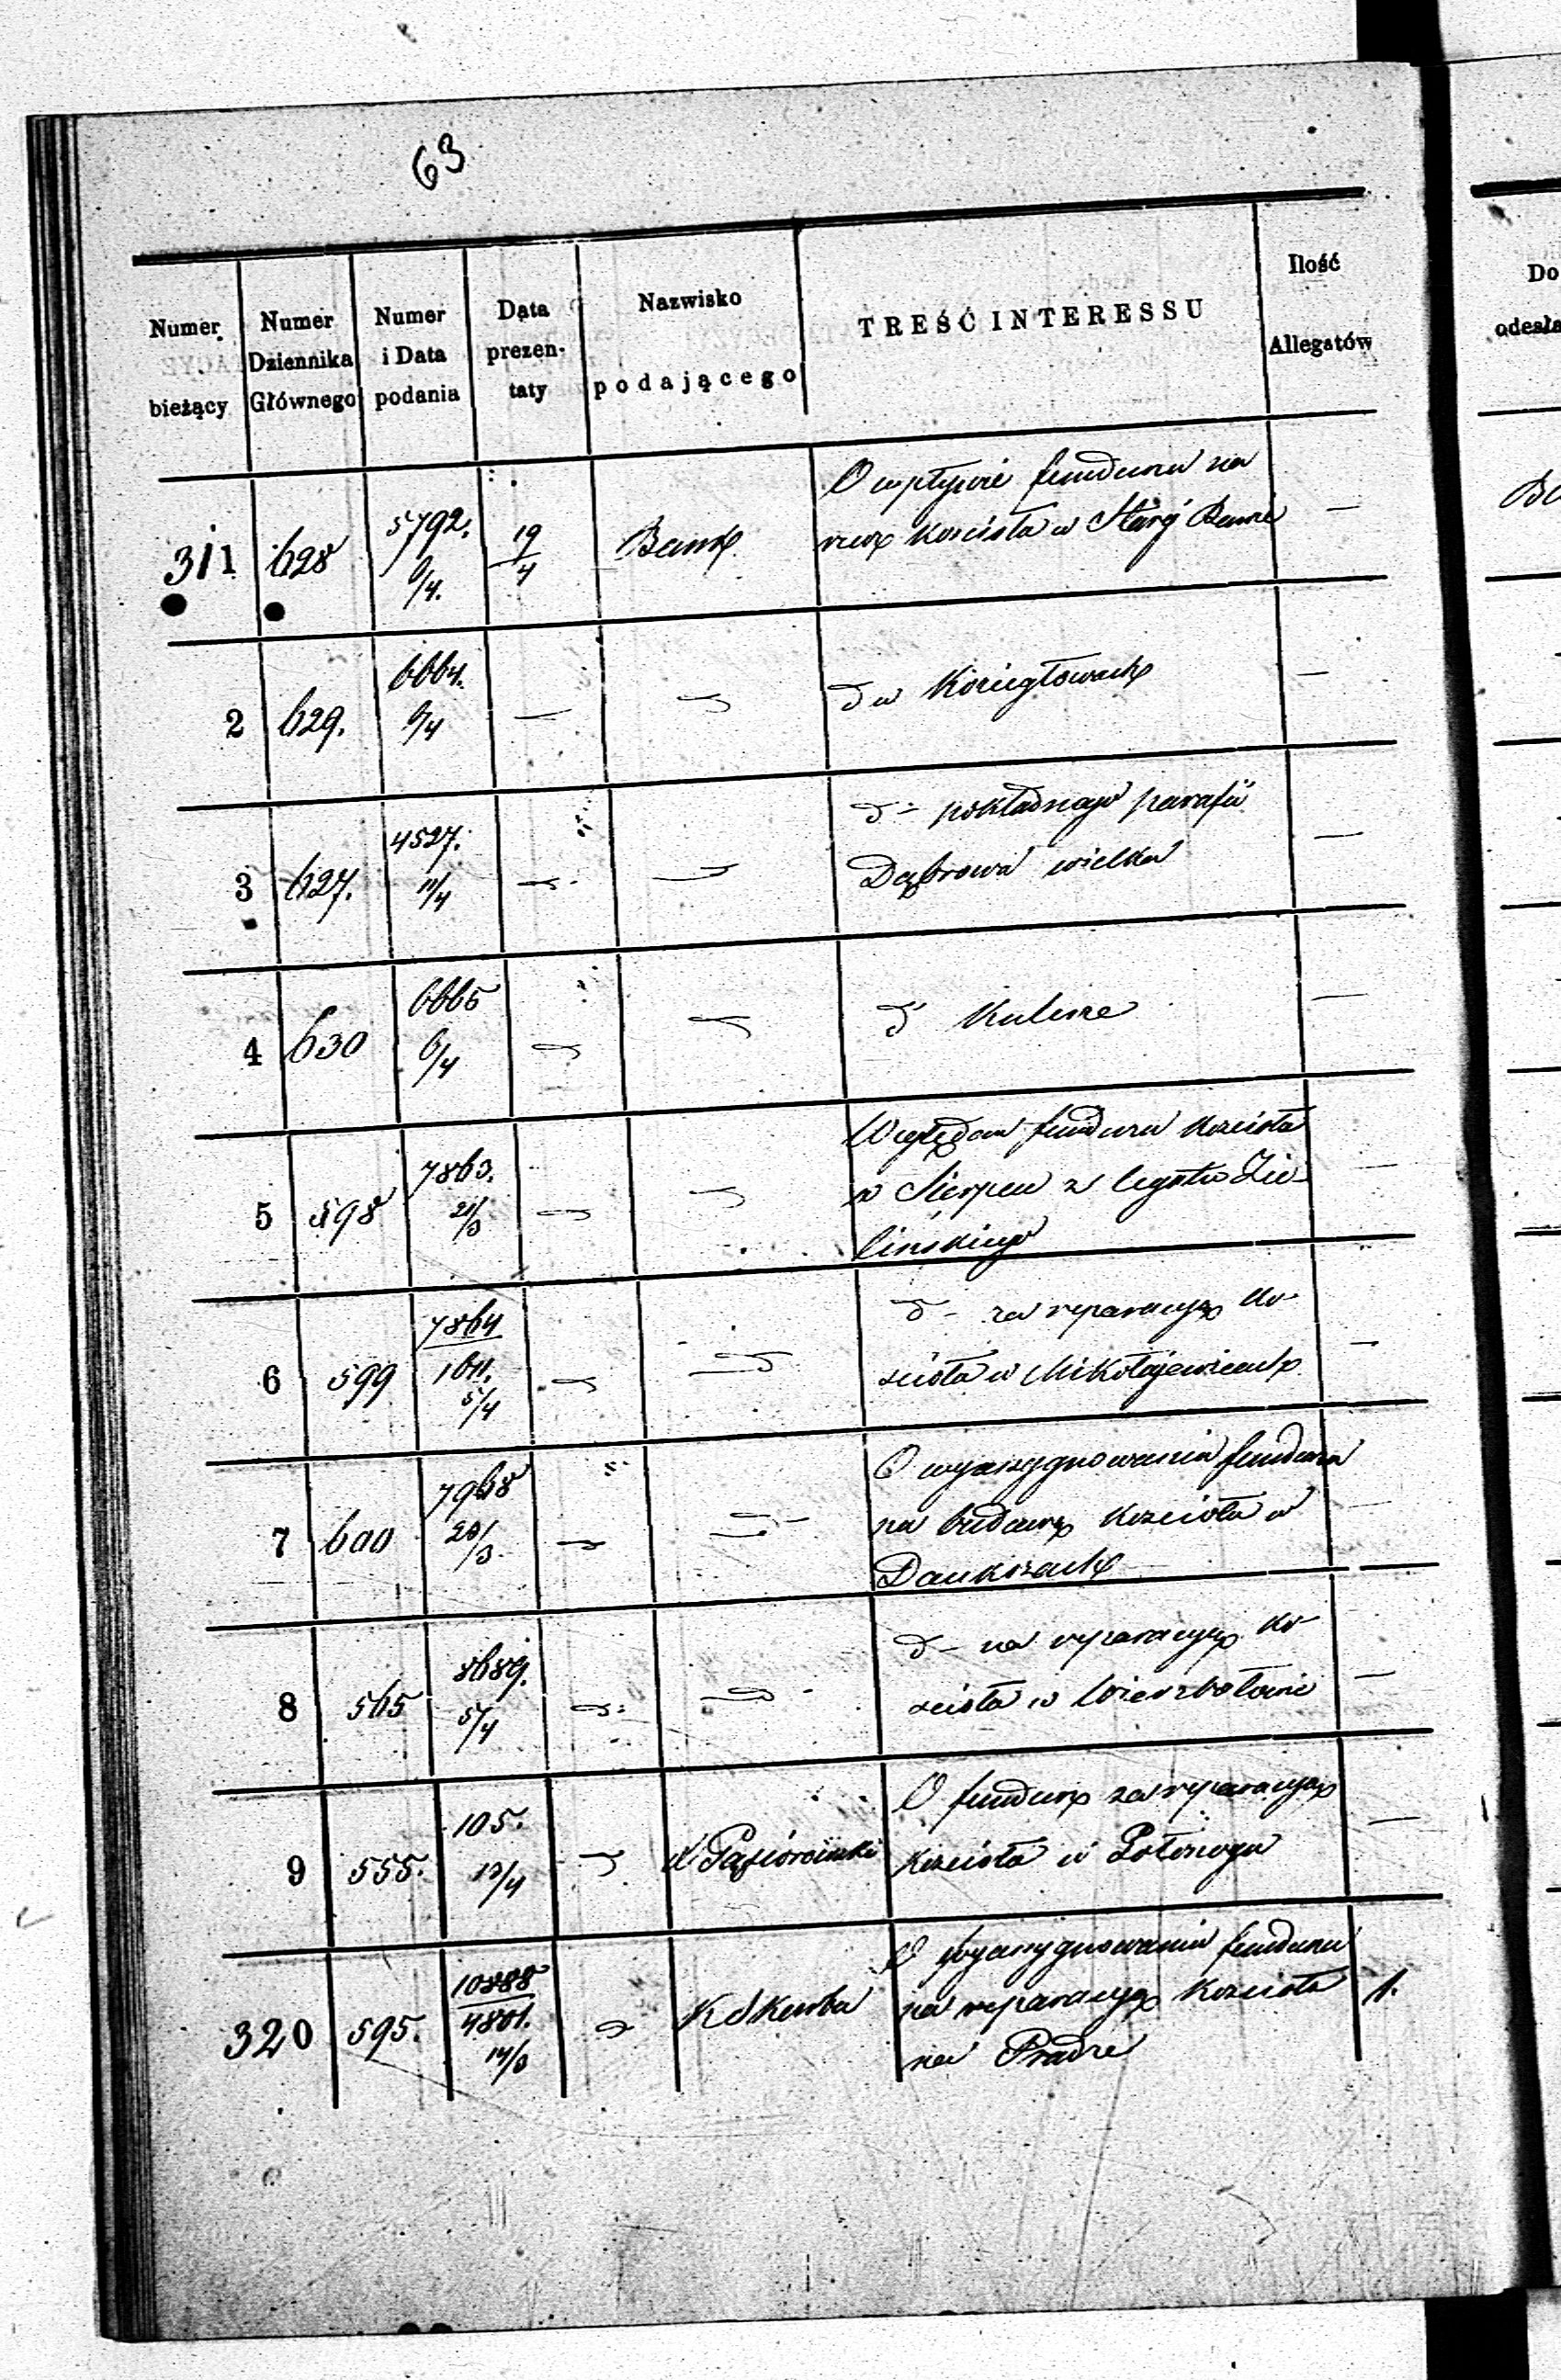 63
Numer bieżący | Numer Dziennika Głównego | Numer i Data podania | Data prezentaty | Nazwisko podającego | TREŚĆ INTERESSU | Ilość Allegatów
Do
odesła
311 628 5792. 6/4. 19/4 Bank
O wpływie funduszu na
rzecz Kościoła w Starej —
2 629. 6664. 6/4 — d w Koziegłowach —
3 627. 4527. 11/4 d - pokładnego parafii
Dąbrowa wielka —
4 630 6665 6/4 d Kulesze —
5 598 7863. 21/3
Względem funduszu Kościoła
w Sierpcu z legatu Zie-
lińskiego
6 599 7864 1611. 5/4
d - za reparacyą Ko-
ścioła w Mikołajewicach —
7 600 7968 20/3
O wyasygnowania funduszu
na budowę Kościoła w
8 565 8689. 5/4
d - na reparacyą Ko-
ścioła w Wierzbołowie —
9 555. 105. 13/4
O fundusz za reparacyą
Kościoła w —
320 595. 10888 4801. 14/3
O wyasygnowanie funduszu
na reparacyą Kościoła 1.
na Pradze